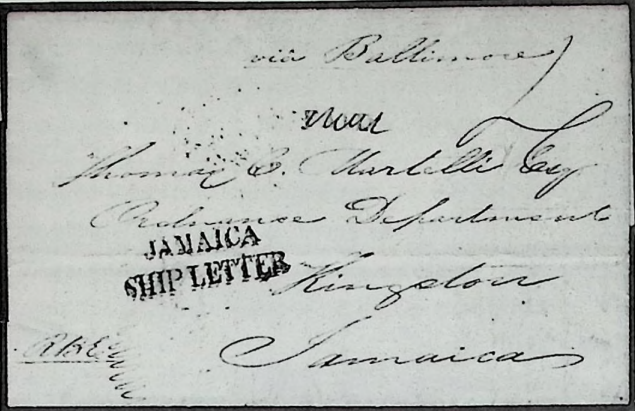 viâ Baltimore
Thomas C. Martelli Esq
Ordnance Department
JAMAICA
SHIP LETTER
Kingston
Jamaica